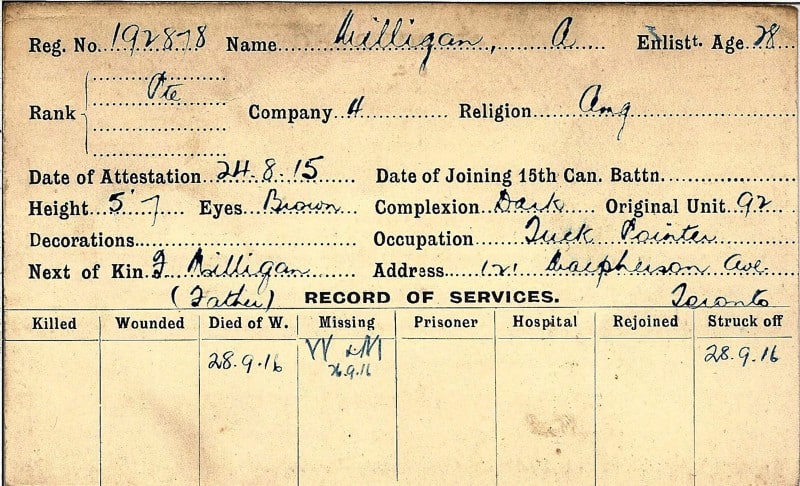 Reg. No. 192878 Name Milligan, A Enlistt. Age 28
Rank Pte Company 4 Religion Ang
Date of Attestation 24-8-15 Date of Joining 15th Can. Battn.
Height 5' 7 Eyes Brown Complexion Dark Original Unit 92
Decorations Occupation Tuck Pointer
Next of Kin F Milligan Address 121 Macpherson Ave
(Father) RECORD OF SERVICES. Toronto
Killed Wounded Died of W. Missing Prisoner Hospital Rejoined Struck off
28.9.16 W & M 28.9.16
26.9.16